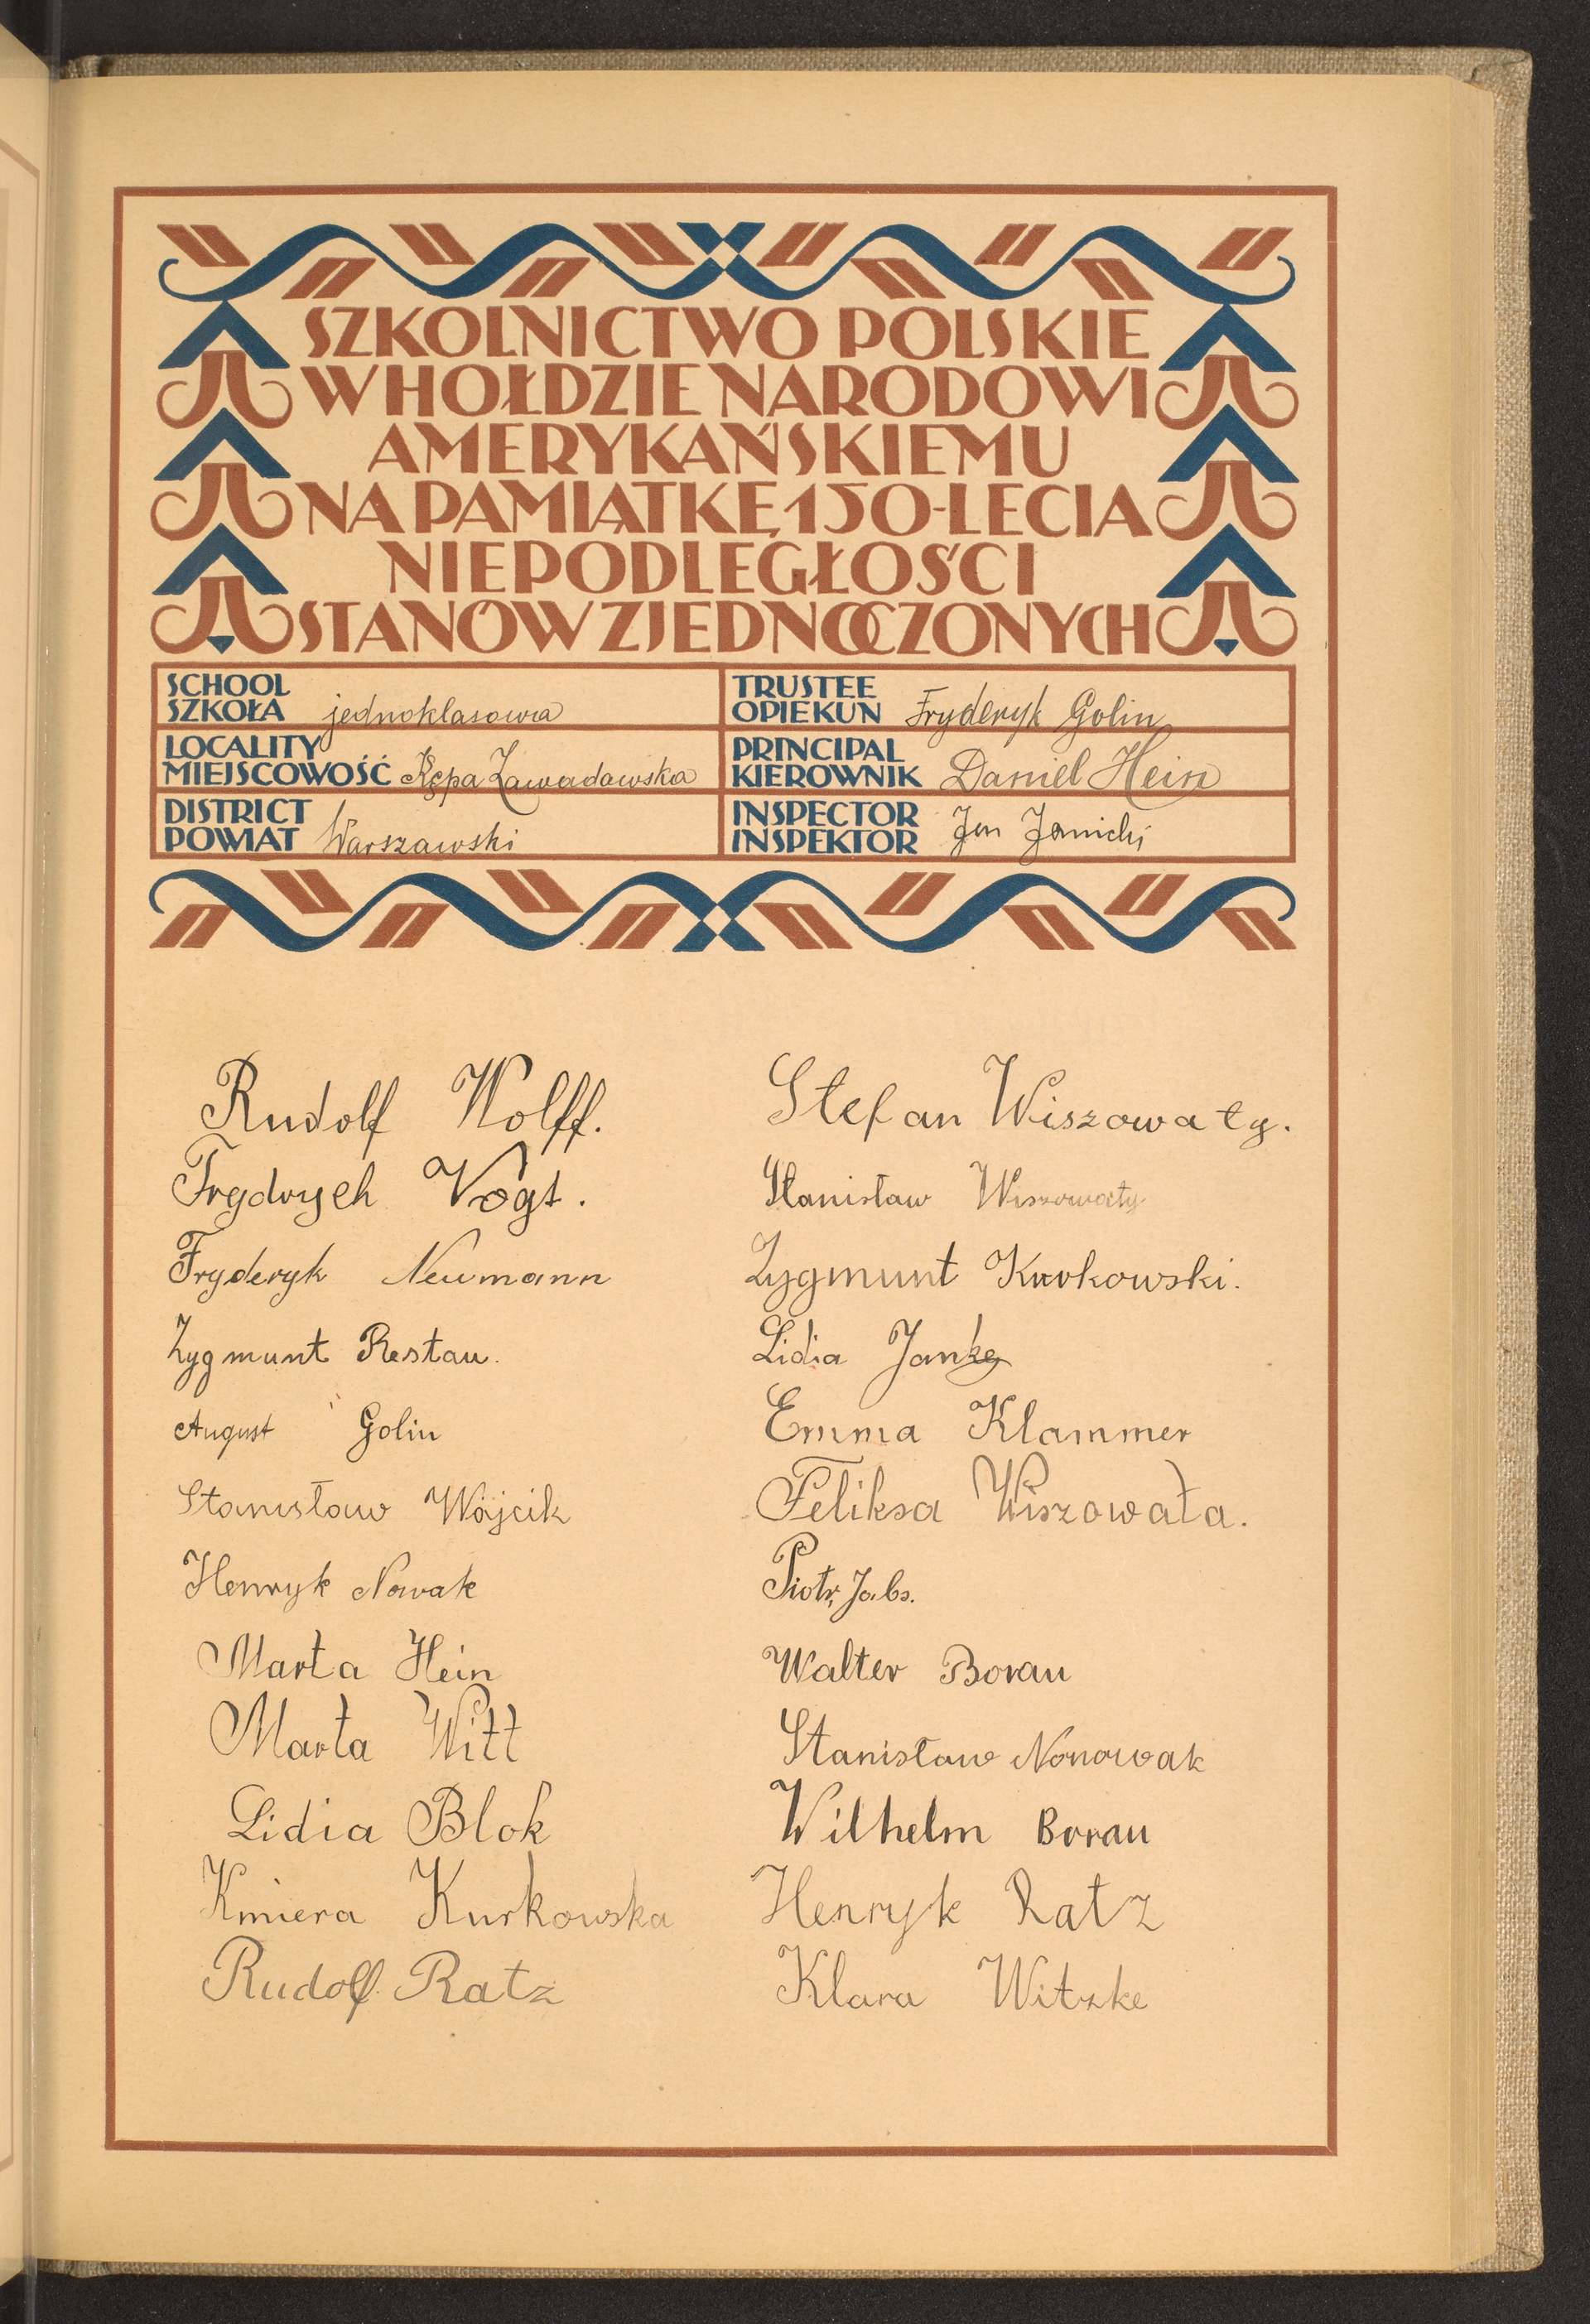 SZKOLNICTWO POLSKIE
W HOŁDZIE NARODOWI
AMERYKAŃSKIEMU
NA PAMIĄTKĘ 150-LECIA
NIEPODLEGŁOŚCI
STANÓW ZJEDNOCZONYCH
SCHOOL
SZKOŁA jednoklasowa
TRUSTEE
OPIEKUN Fryderyk Golin
LOCALITY
MIEJSCOWOŚĆ Kępa Zawadowska
PRINCIPAL
KIEROWNIK Daniel Hein
DISTRICT
POWIAT Warszawski
INSPECTOR
INSPEKTOR Jan Janicki
Rudolf Wolff.
Frydrych Vogt.
Fryderyk Neumann
Zygmunt Restau.
August Golin
Stanisław Wójcik
Henryk Nowak
Marta Hein
Marta Witt
Lidia Blok
Kmiera Kurkowska
Rudolf Ratz
Stefan Wiszowaty.
Stanisław Wiszowaty
Zygmunt Kurkowski.
Lidia
Emma Klammer
Feliksa Wiszowata.
Piotr
Walter Borau
Stanisław Nonowak
Wilhelm Borau
Henryk Ratz
Klara Witzke